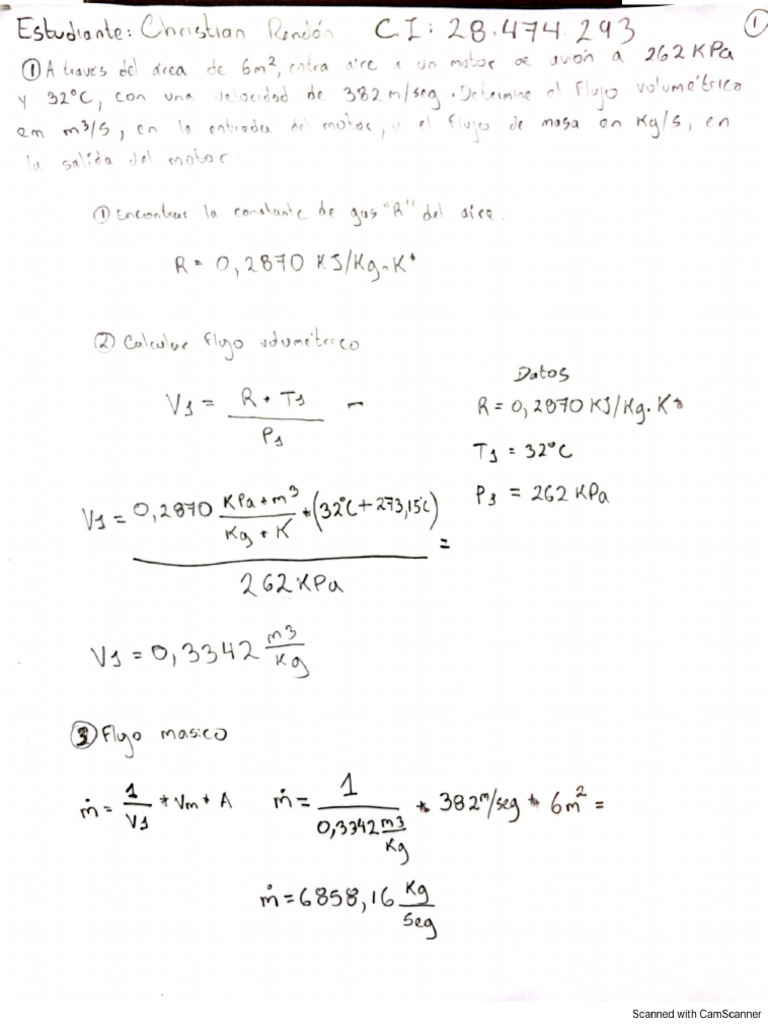 Estudiante: Christian Rondón CI: 28.474.293 ①
① A traves del área de 6m², entra aire a un motor de avión a 262 KPa
y 32°C, con una velocidad de 382 m/seg. Determine el flujo volumétrico
em m³/s, en la entrada del motor, y el flujo de masa en Kg/s, en
la salida del motor
① Encontrar la constante de gas "R" del aire.
R = 0,2870 KJ/Kg.K*
② Calcular flujo volumétrico
Datos
V1 = R * T1 / P1 -
R = 0,2870 KJ/Kg.K*
T1 = 32°C
P1 = 262 KPa
V1 = 0,2870 KPa*m³/Kg*K * (32°C + 273,15°C) / 262 KPa =
V1 = 0,3342 m³/Kg
③ Flujo masico
ṁ = 1/V1 * Vm * A ṁ = 1 / 0,3342 m³/Kg * 382 m/seg * 6m² =
ṁ = 6858,16 Kg/seg
Scanned with CamScanner